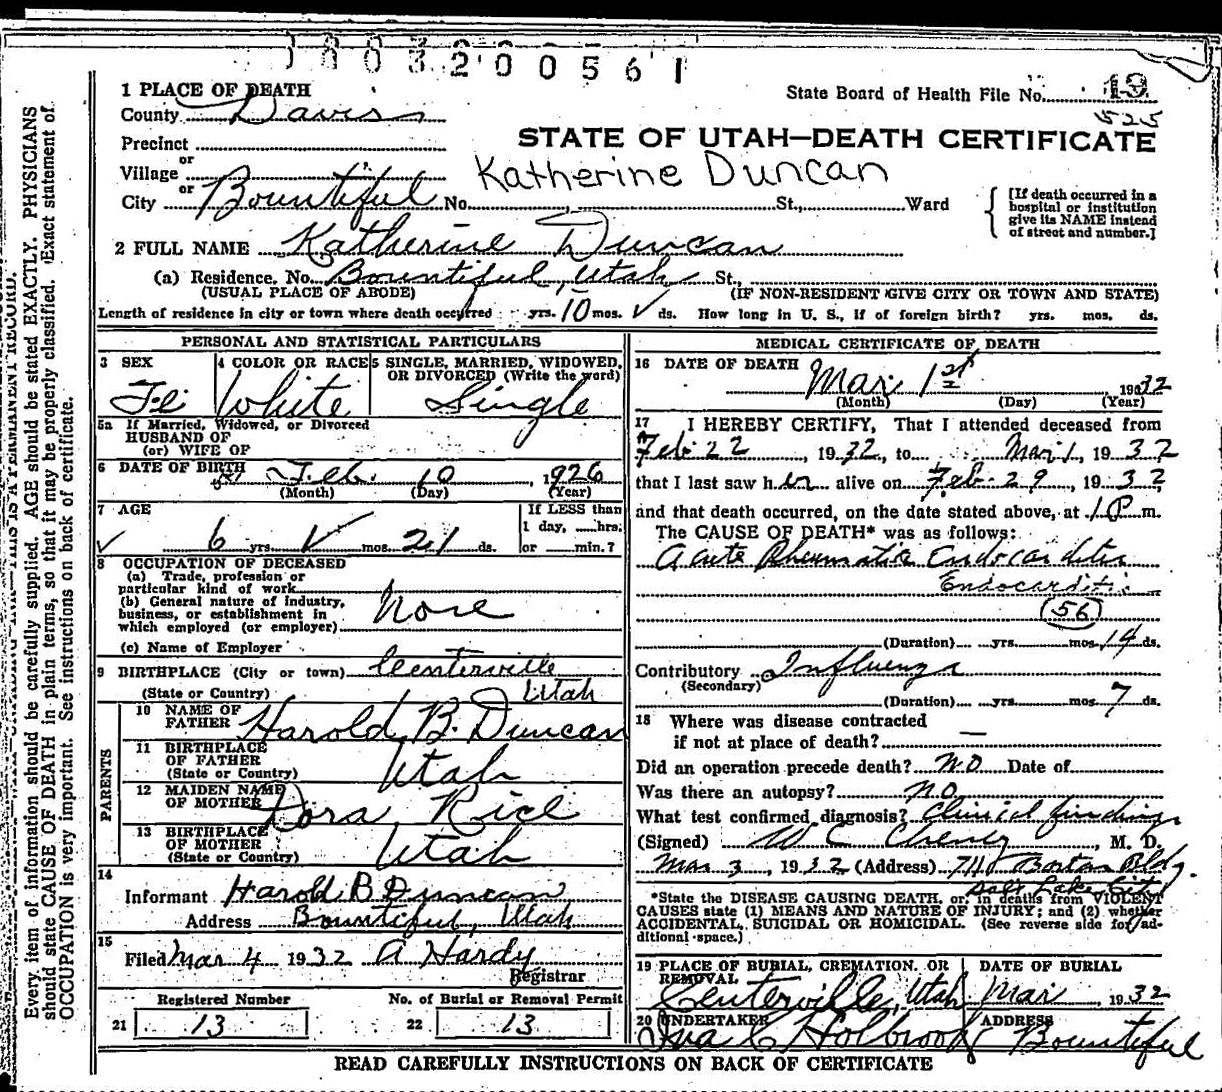 1 8 0 3 2 0 0 5 6 1
1 PLACE OF DEATH
State Board of Health File No. 19
525
County Davis
STATE OF UTAH—DEATH CERTIFICATE
Precinct
or
Village
Katherine Duncan
or
City Bountiful No. St., Ward
[If death occurred in a hospital or institution give its NAME instead of street and number.]
2 FULL NAME Katherine Duncan
(a) Residence. No. Bountiful, Utah St.,
(USUAL PLACE OF ABODE) (IF NON-RESIDENT GIVE CITY OR TOWN AND STATE)
Length of residence in city or town where death occurred yrs. 10 mos. ✓ ds. How long in U. S., if of foreign birth? yrs. mos. ds.
PERSONAL AND STATISTICAL PARTICULARS
3 SEX
Fe
4 COLOR OR RACE
White
5 SINGLE, MARRIED, WIDOWED, OR DIVORCED (Write the word)
Single
5a If Married, Widowed, or Divorced
HUSBAND OF
(or) WIFE OF
6 DATE OF BIRTH Feb. 10, 1926
(Month) (Day) (Year)
7 AGE
✓ 6 yrs. ✓ mos. 21 ds.
If LESS than
1 day, hrs.
or min.?
8 OCCUPATION OF DECEASED
(a) Trade, profession or
particular kind of work
(b) General nature of industry,
business, or establishment in
which employed (or employer)
None
(c) Name of Employer
9 BIRTHPLACE (City or town) Centerville
(State or Country) Utah
PARENTS
10 NAME OF FATHER Harold B. Duncan
11 BIRTHPLACE OF FATHER (State or Country) Utah
12 MAIDEN NAME OF MOTHER Dora Rice
13 BIRTHPLACE OF MOTHER (State or Country) Utah
14
Informant Harold B Duncan
Address Bountiful, Utah
15
Filed Mar 4 1932 A Hardy
Registrar
Registered Number
21 13
No. of Burial or Removal Permit
22 13
MEDICAL CERTIFICATE OF DEATH
16 DATE OF DEATH Mar 1st 1932
(Month) (Day) (Year)
17 I HEREBY CERTIFY, That I attended deceased from
Feb 22, 1932, to Mar 1, 1932
that I last saw her alive on Feb. 29, 1932
and that death occurred, on the date stated above, at 1 P m.
The CAUSE OF DEATH* was as follows:
Acute Rheumatic Endocarditis
Endocarditis
56
(Duration) yrs. mos. 14 ds.
Contributory Influenza
(Secondary)
(Duration) yrs. mos. 7 ds.
18 Where was disease contracted
if not at place of death? —
Did an operation precede death? No Date of
Was there an autopsy? no
What test confirmed diagnosis? Clinical findings
(Signed) W C Cheney, M. D.
Mar 3, 1932 (Address) 711 Boston Bldg.
Salt Lake City
*State the DISEASE CAUSING DEATH, or, in deaths from VIOLENT
CAUSES state (1) MEANS AND NATURE OF INJURY; and (2) whether
ACCIDENTAL, SUICIDAL OR HOMICIDAL. (See reverse side for ad-
ditional space.)
19 PLACE OF BURIAL, CREMATION, OR REMOVAL
Centerville, Utah
DATE OF BURIAL
Mar, 1932
20 UNDERTAKER
Iva C Holbrook
ADDRESS
Bountiful
READ CAREFULLY INSTRUCTIONS ON BACK OF CERTIFICATE
Every item of information should be carefully supplied. AGE should be stated EXACTLY. PHYSICIANS
should state CAUSE OF DEATH in plain terms, so that it may be properly classified. Exact statement of
OCCUPATION is very important. See instructions on back of certificate.